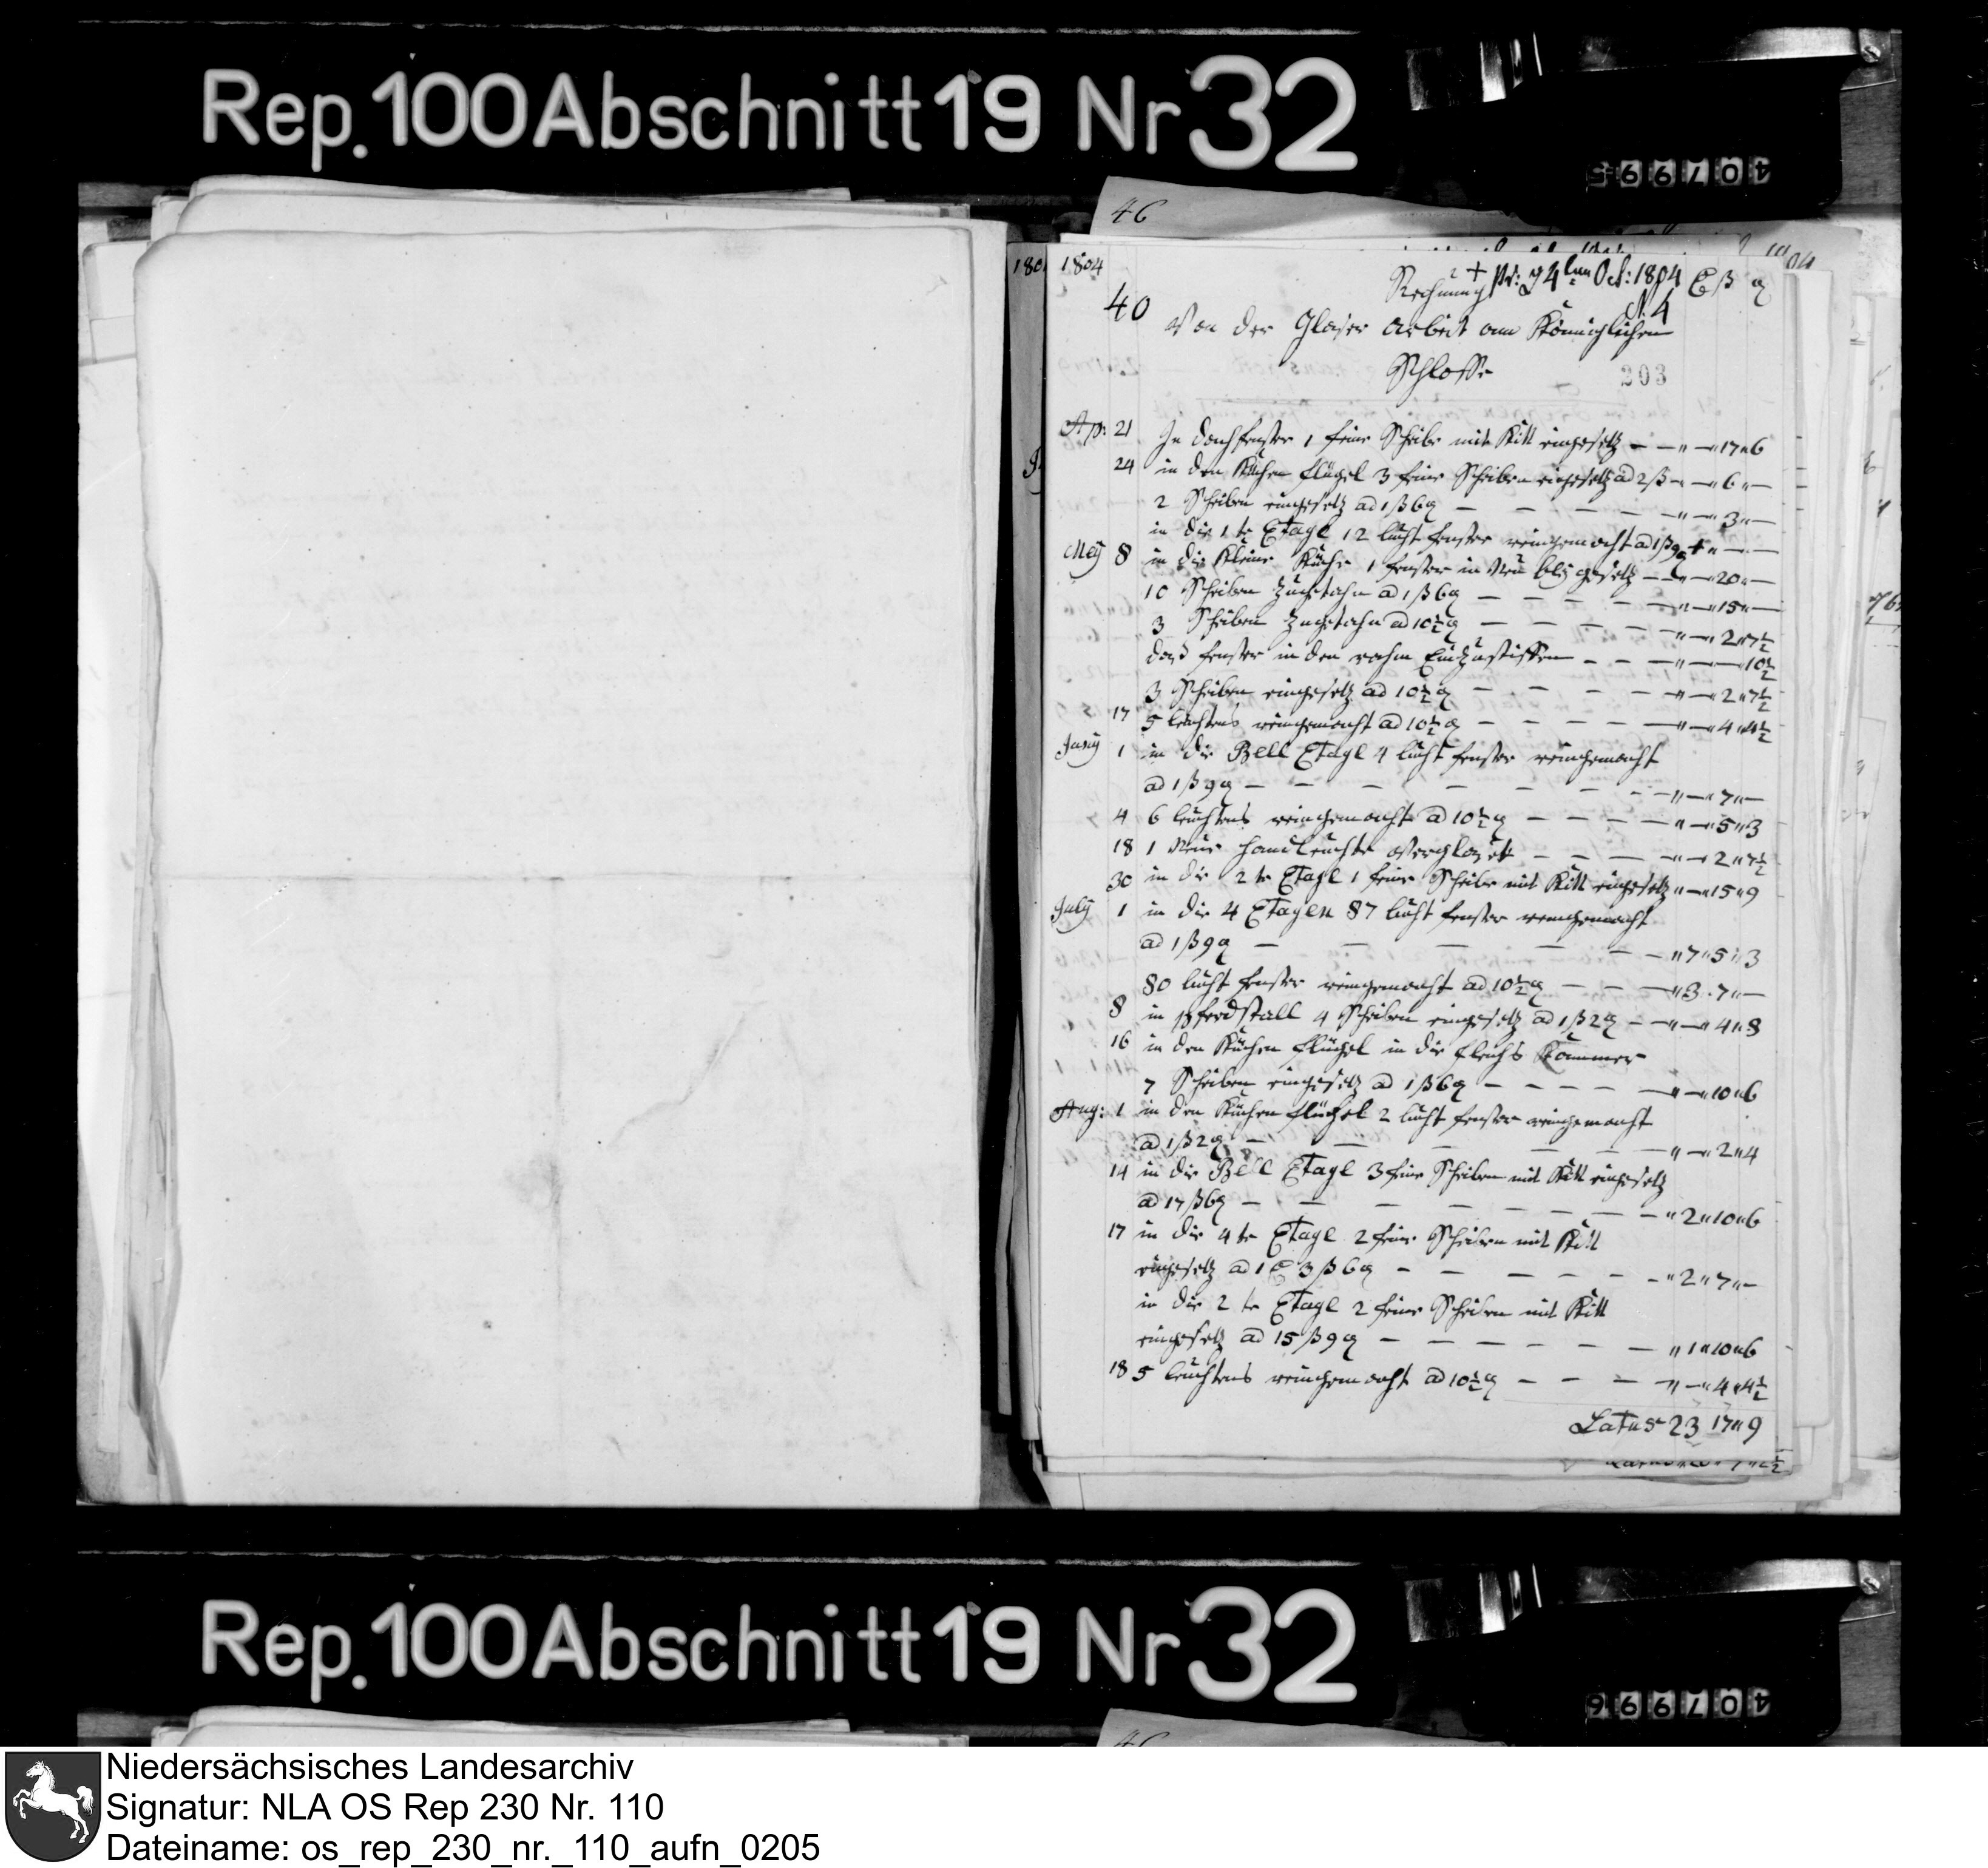 Rep. 100 Abschnitt 19 Nr 32
407995
46
1804
Rechnung pr: 4ten Oct: 1804 ß
N. 4
40
Von der Glaser arbeit am Königlichen
Schlosse
203
Ap: 21 In dachfenster 1 feine Scheibe mit Kitt eingesetz — — " — " 17 " 6
24 in den Küchen flügel 3 feine Scheiben eingesetz ad 2ß — " — " 6 " —
2 Scheiben eingesetz ad 1ß 6 — — — — " — " 3 " —
in die 1 te Etage 12 lucht fenster reingemacht ad 1ß 9
Mey 8 in die Kleine Küche 1 fenster in Neu bley gesetz — " — " 20 " —
10 Scheiben Zugetahn ad 1ß 6 — — — — " — " 15 " —
3 Scheiben Zugetahn ad 10½ — — — — " — " 2 " 7½
daß fenster in den rahm Einzustiften — — — " — " — 10½
3 Scheiben eingesetz ad 10½ — — — — " — " 2 " 7½
17 5 leuchtens reingemacht ad 10½ — — — — " — " 4 " 4½
Juny 1 in die Bell Etage 4 lucht fenster reingemacht
ad 1ß 9 — — — — — — " — " 7 " —
4 6 leuchtens reingemacht ad 10½ — — — — " — " 5 " 3
18 1 Neue handleuchte — — — " — " 2 " 7½
30 in die 2 te Etage 1 feine Scheibe mit Kitt eingesetz " — " 15 " 9
July 1 in die 4 Etagen 87 lucht fenster reingemacht
ad 1ß 9 — — — — — " 7 " 5 " 3
80 lucht fenster reingemacht ad 10½ — — — " 3 " 7 " —
8 in pferdstall 4 Scheiben eingesetz ad 1ß 2 — — " — " 4 " 8
16 in den Küchen flügel in die fleichs Kammer
7 Scheiben eingesetz ad 1ß 6 — — — — " — " 10 " 6
Aug: 1 in den Küchen flüchel 2 lucht fenster reingemacht
ad 1ß 2 — — — — — " — " 2 " 4
14 in die Bell Etage 3 feine Scheiben mit Kitt eingesetz
ad 17ß 6 — — — — — — — " 2 " 10 " 6
17 in die 4 te Etage 2 feine Scheiben mit Kitt
eingesetz ad 1 3ß 6 — — — — — " 2 " 7 " —
in die 2 te Etage 2 feine Scheiben mit Kitt
eingesetz ad 15ß 9 — — — — — " 1 " 10 " 6
18 5 leuchtens reingemacht ad 10½ — — — " — " 4 " 4½
Latus 23 17 " 9
Rep. 100 Abschnitt 19 Nr 32
407996
Niedersächsisches Landesarchiv
Signatur: NLA OS Rep 230 Nr. 110
Dateiname: os_rep_230_nr._110_aufn_0205